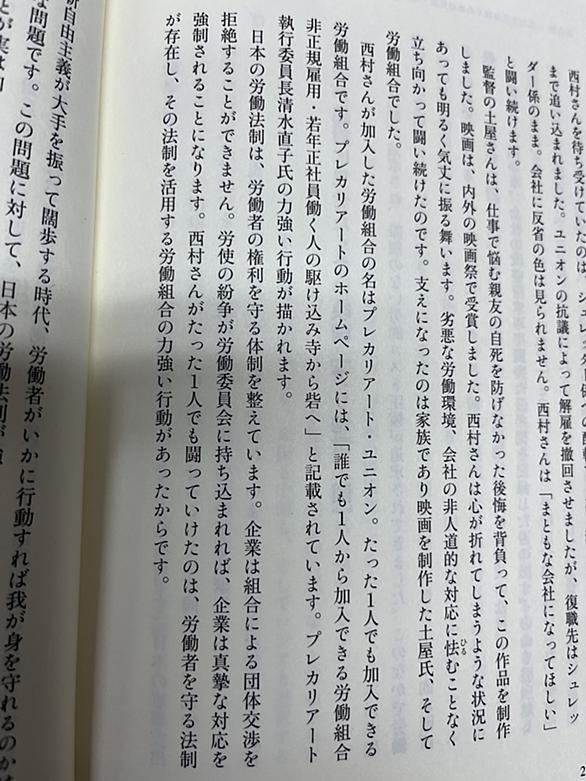 西村さんを待ち受けていたのは、シュレッダー係への配転
まで追い込まれました。ユニオンの抗議によって解雇を撤回させましたが、復職先はシュレッ
ダー係のまま。会社に反省の色は見られません。西村さんは「まともな会社になってほしい」
と闘い続けます。
監督の土屋さんは、仕事で悩む親友の自死を防げなかった後悔を背負って、この作品を制作
しました。映画は、内外の映画祭で受賞しました。西村さんは心が折れてしまうような状況に
あっても明るく気丈に振る舞います。劣悪な労働環境、会社の非人道的な対応に怯むことなく
ひる
立ち向かって闘い続けたのです。支えになったのは家族であり映画を制作した土屋氏、そして
労働組合でした。
西村さんが加入した労働組合の名はプレカリアート・ユニオン。たった1人でも加入できる
労働組合です。プレカリアートのホームページには、「誰でも1人から加入できる労働組合
非正規雇用・若年正社員働く人の駆け込み寺から砦へ」と記載されています。プレカリアート
執行委員長清水直子氏の力強い行動が描かれます。
日本の労働法制は、労働者の権利を守る体制を整えています。企業は組合による団体交渉を
拒絶することができません。労使の紛争が労働委員会に持ち込まれれば、企業は真摯な対応を
強制されることになります。西村さんがたった1人でも闘っていけたのは、労働者を守る法制
が存在し、その法制を活用する労働組合の力強い行動があったからです。
自由主義が大手を振って闊歩する時代、労働者がいかに行動すれば我が身を守れるのか
な問題です。この問題に対して、日本の労働法制が
とが実は
2